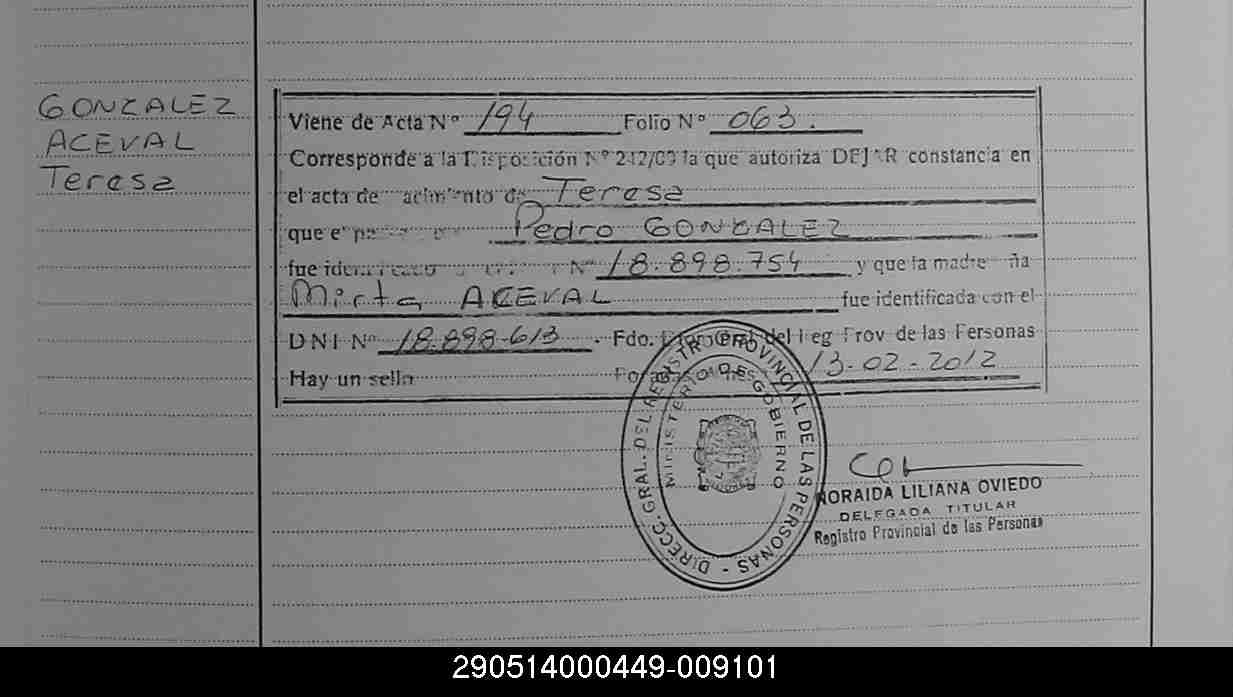 GONZALEZ
ACEVAL
Teresa
Viene de Acta Nº 194 Folio Nº 063.
Corresponde a la Disposición Nº 242/09 la que autoriza DEJAR constancia en
el acta de nacimiento de Teresa
que el Pedro GONZALEZ
fue Nº 18.898.754 y que la madre ña
Mirta ACEVAL fue identificada con el
DNI Nº 18.898.613. Fdo. del Reg Prov de las Personas
Hay un sello 13-02-2012
DIRECC. GRAL. DEL REGISTR. PROVINCIAL DE LAS PERSONAS -
MINISTERIO DE GOBIERNO
NORAIDA LILIANA OVIEDO
DELEGADA TITULAR
Registro Provincial de las Personas
290514000449-009101